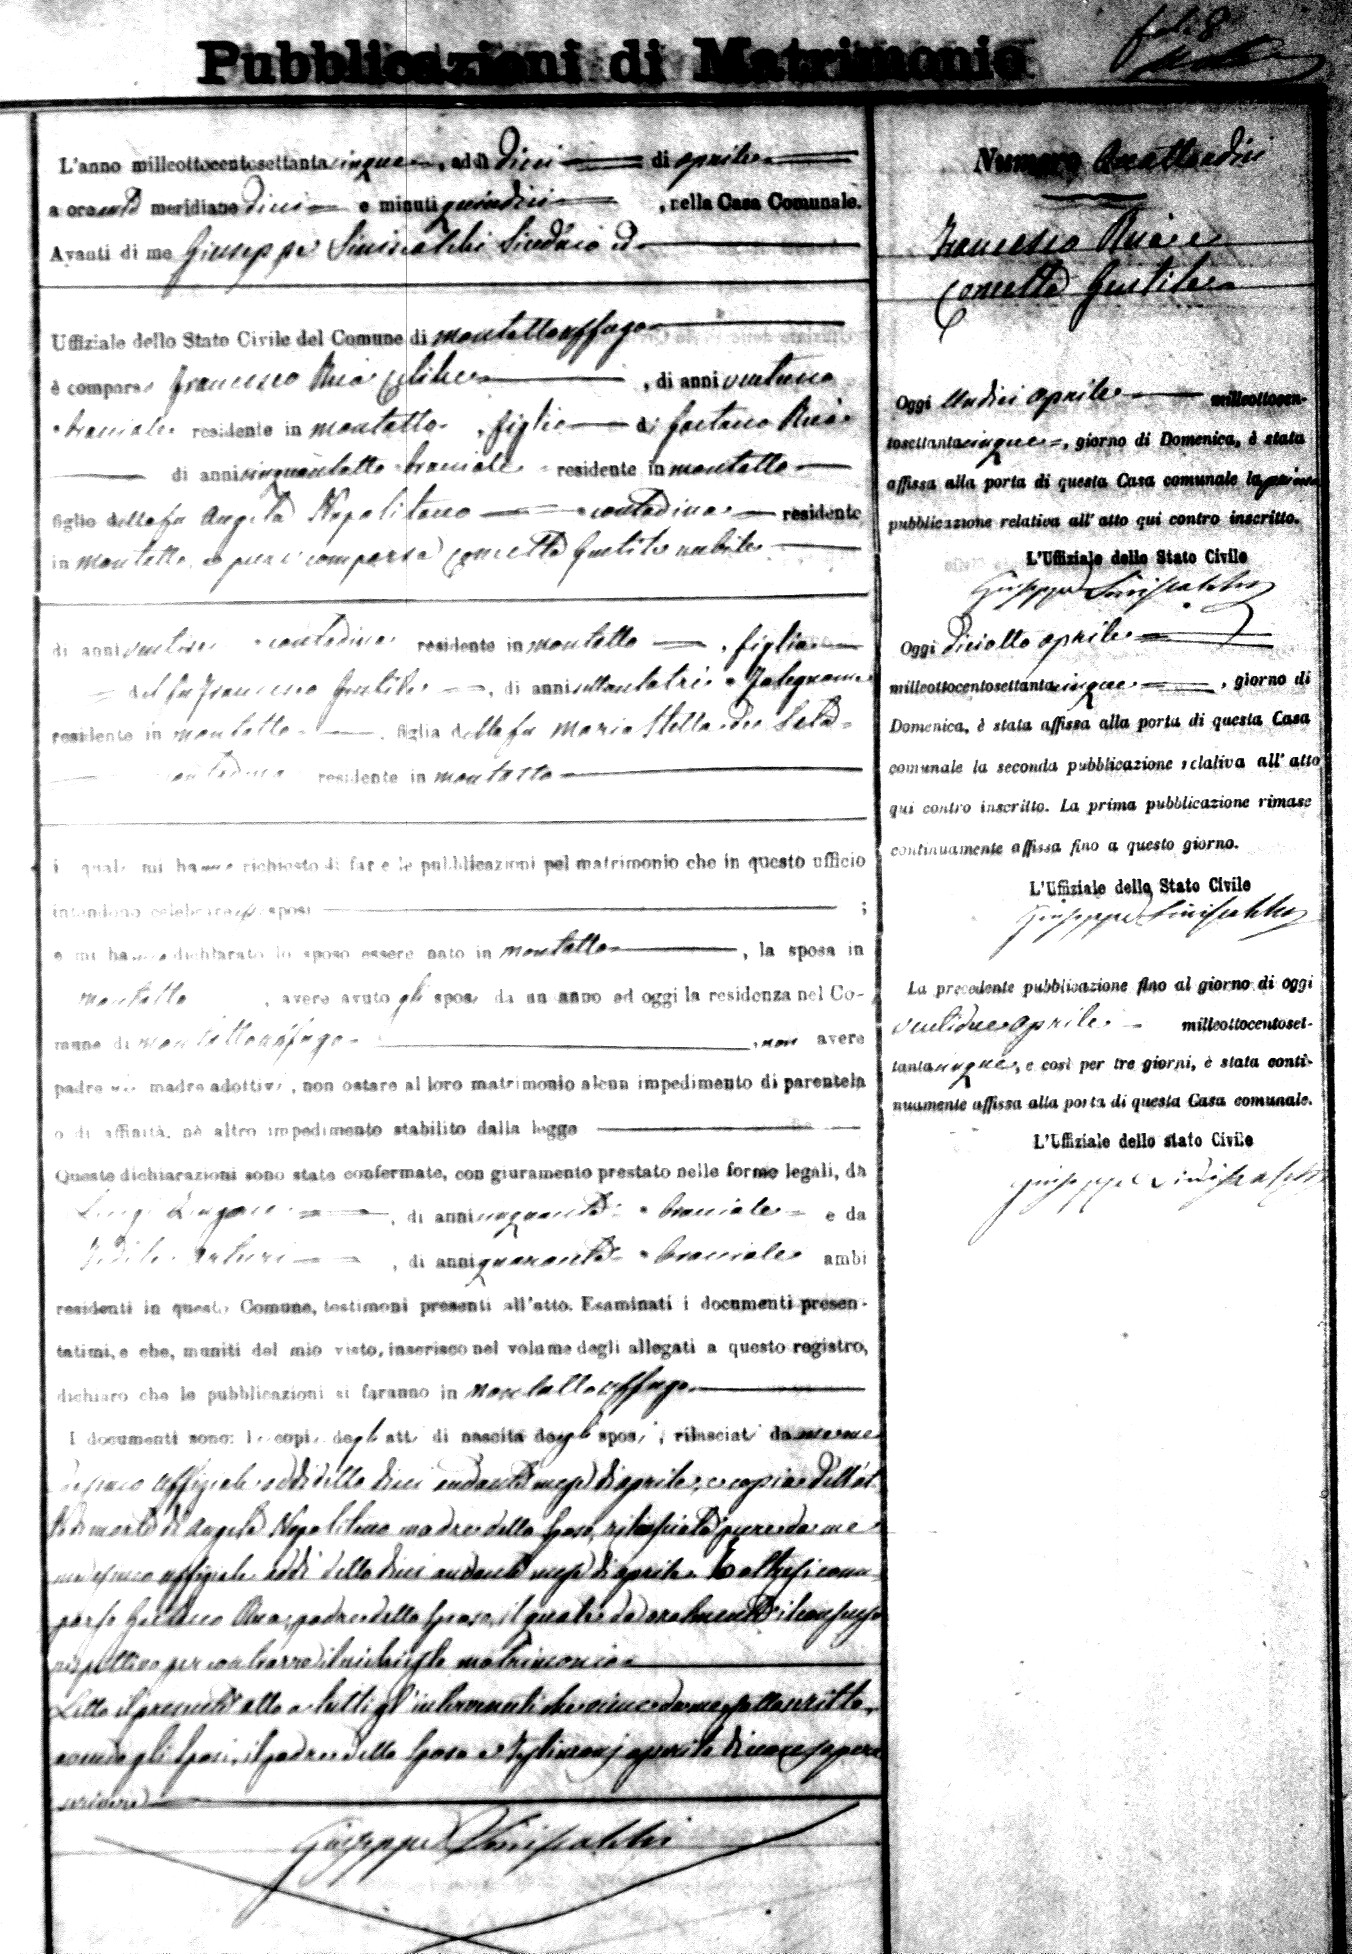 fol. 8
Pubblicazioni di Matrimonio
L'anno milleottocentosettantacinque, addì dieci di aprile
a ore anti meridiane dieci e minuti quindici, nella Casa Comunale.
Avanti di me Giuseppe Siniscalchi Sindaco ed
Uffiziale dello Stato Civile del Comune di montaltouffugo
è comparso Francesco celibe, di anni ventuno
bracciale residente in montalto, figlio di Gaetano
di anni cinquantotto bracciale residente in montalto
figlio della fu Angela Napolitano contadina residente
in montalto, e pure comparsa Concetta Gentile nubile
di anni contadina residente in montalto, figlia
del fu Francesco Gentile, di anni settantatrè Falegname
residente in montalto, figlia della fu Maria Stella
contadina residente in montalto
i quali mi hanno richiesto di fare le pubblicazioni pel matrimonio che in questo ufficio
intendono celebrare essi sposi ;
e mi hanno dichiarato lo sposo essere nato in montalto, la sposa in
montalto, avere avuto gli sposi da un anno ad oggi la residenza nel Co-
mune di montaltouffugo, non avere
padre nè madre adottivi, non ostare al loro matrimonio alcun impedimento di parentela
o di affinità, nè altro impedimento stabilito dalla legge
Queste dichiarazioni sono state confermate, con giuramento prestato nelle forme legali, da
Luigi, di anni cinquanta bracciale e da
Arturi, di anni quaranta bracciale ambi
residenti in questo Comune, testimoni presenti all'atto. Esaminati i documenti presen-
tatimi, e che, muniti del mio visto, inserisco nel volume degli allegati a questo registro,
dichiaro che le pubblicazioni si faranno in montaltouffugo
I documenti sono: le copie degli atti di nascita degli sposi, rilasciati da me me
desimo uffiziale addì detto dieci andante mese di aprile, e copia dell'at
to di morte di Angela Napolitano madre dello sposo, rilasciata pure da me
medesimo uffiziale addì detto dieci andante mese di aprile. È altresì com
parso Gaetano, padre dello sposo, il quale dà oralmente il consenso
rispettivo per contrarre il richiesto matrimonio
Letto il presente atto a tutti gl'intervenuti che viene da me sottoscritto,
avendo gli sposi, il padre dello sposo e testimonj asserito di non sapere
scrivere
Giuseppe Siniscalchi
Numero Quattordici
Francesco e
Concetta Gentile
Oggi undici aprile milleottocen-
tosettantacinque, giorno di Domenica, è stata
affissa alla porta di questa Casa comunale la prima
pubblicazione relativa all'atto qui contro inscritto.
L'Uffiziale dello Stato Civile
Giuseppe Siniscalchi
Oggi diciotto aprile
milleottocentosettantacinque, giorno di
Domenica, è stata affissa alla porta di questa Casa
comunale la seconda pubblicazione relativa all'atto
qui contro inscritto. La prima pubblicazione rimase
continuamente affissa fino a questo giorno.
L'Uffiziale dello Stato Civile
Giuseppe Siniscalchi
La precedente pubblicazione fino al giorno di oggi
ventidue aprile milleottocentoset-
tantacinque, e così per tre giorni, è stata conti-
nuamente affissa alla porta di questa Casa comunale.
L'Uffiziale dello stato Civile
Giuseppe Siniscalchi